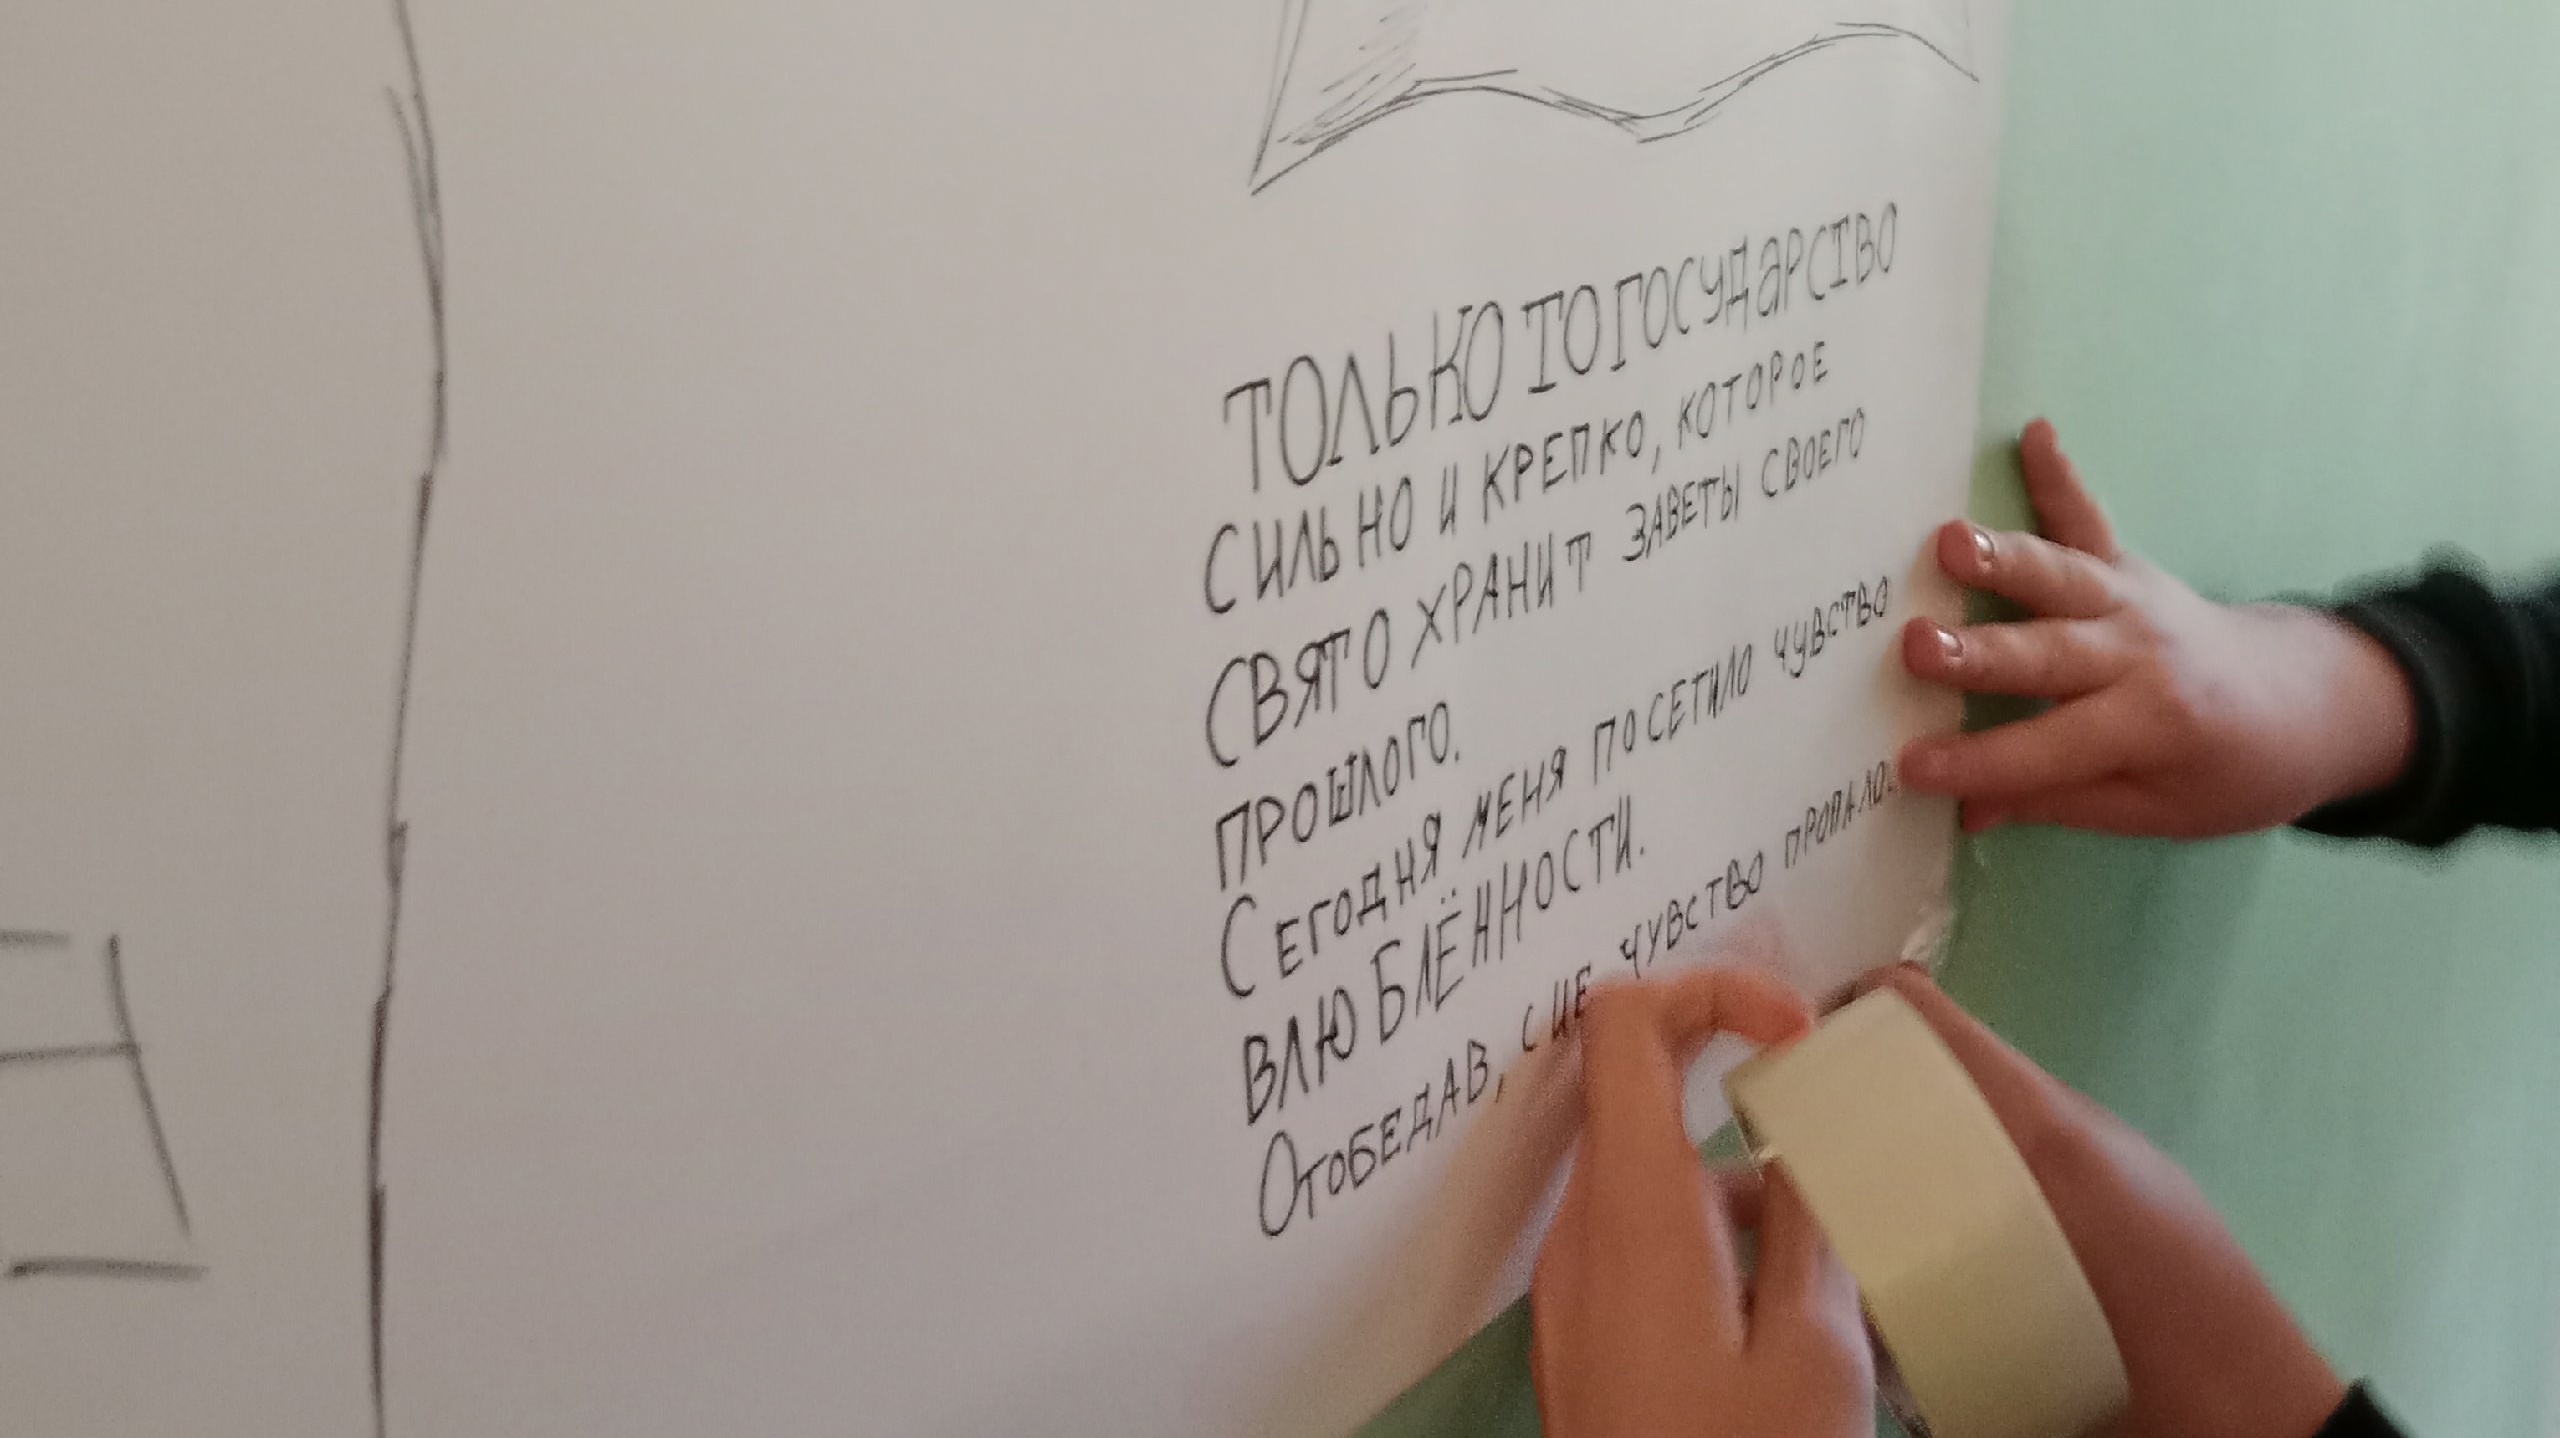 ТОЛЬКО ТО ГОСУДАРСТВО
СИЛЬНО И КРЕПКО, КОТОРОЕ
СВЯТО ХРАНИТ ЗАВЕТЫ СВОЕГО
ПРОШЛОГО.
СЕГОДНЯ МЕНЯ ПОСЕТИЛО ЧУВСТВО
ВЛЮБЛЁННОСТИ.
ОТОБЕДАВ, СИЕ ЧУВСТВО ПРОПАЛО